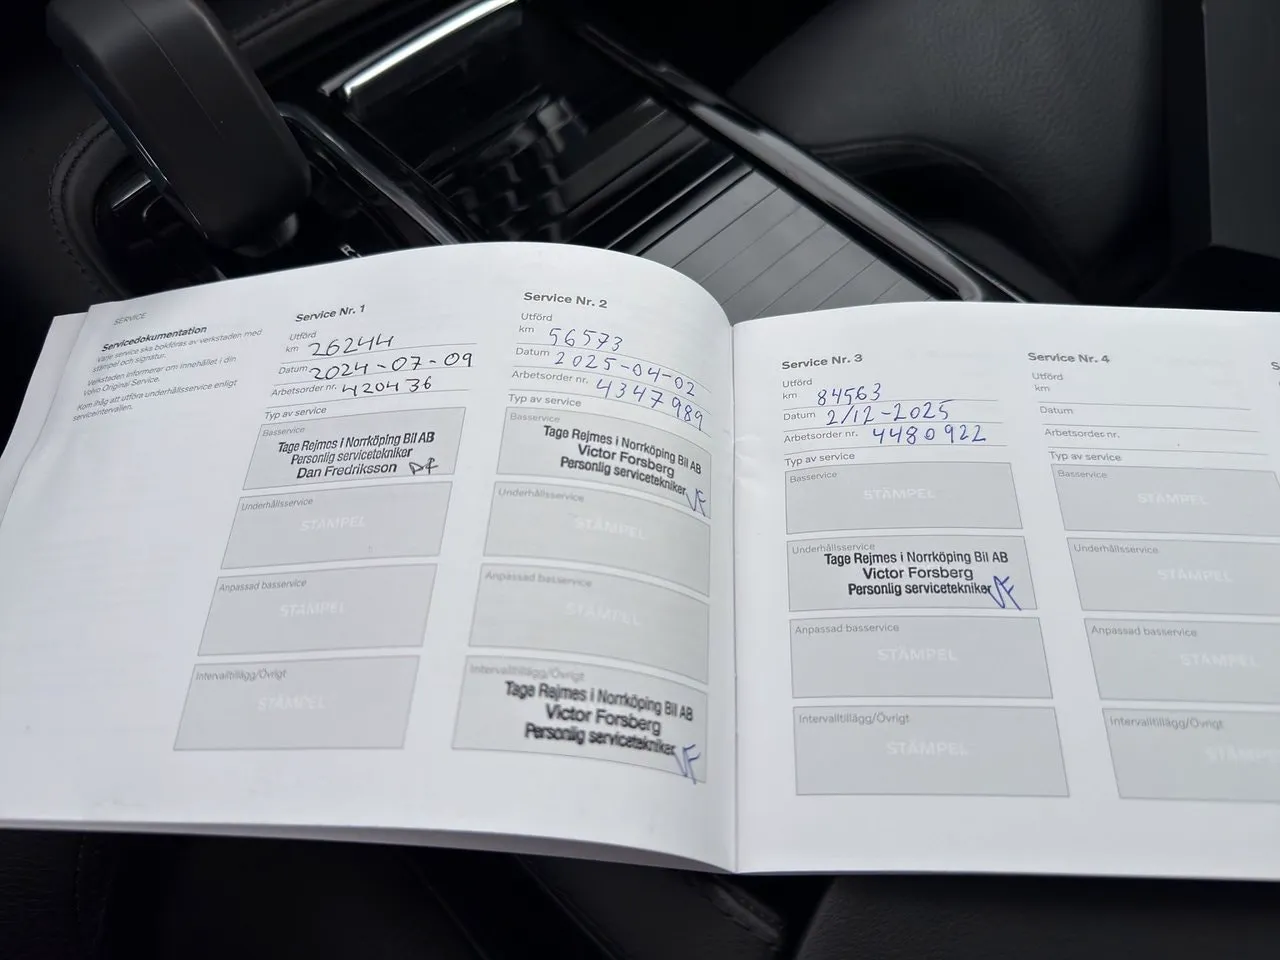 SERVICE
Servicedokumentation
Varje service ska bokföras av verkstaden med
stämpel och signatur.
Verkstaden informerar om innehållet i din
Volvo Original Service.
Kom ihåg att utföra underhållsservice enligt
serviceintervallen.
Service Nr. 1
Utförd
km 26244
Datum 2024-07-09
Arbetsorder nr. 420436
Typ av service
Basservice
Tage Rejmes i Norrköping Bil AB
Personlig servicetekniker
Dan Fredriksson DF
Underhållsservice
STÄMPEL
Anpassad basservice
STÄMPEL
Intervalltillägg/Övrigt
STÄMPEL
Service Nr. 2
Utförd
km 56573
Datum 2025-04-02
Arbetsorder nr. 4347989
Typ av service
Basservice
Tage Rejmes i Norrköping Bil AB
Victor Forsberg
Personlig servicetekniker VF
Underhållsservice
STÄMPEL
Anpassad basservice
STÄMPEL
Intervalltillägg/Övrigt
Tage Rejmes i Norrköping Bil AB
Victor Forsberg
Personlig servicetekniker VF
Service Nr. 3
Utförd
km 84563
Datum 2/12-2025
Arbetsorder nr. 4480922
Typ av service
Basservice
STÄMPEL
Underhållsservice
Tage Rejmes i Norrköping Bil AB
Victor Forsberg
Personlig servicetekniker VF
Anpassad basservice
STÄMPEL
Intervalltillägg/Övrigt
STÄMPEL
Service Nr. 4
Utförd
km
Datum
Arbetsorder nr.
Typ av service
Basservice
STÄMPEL
Underhållsservice
STÄMPEL
Anpassad basservice
STÄMPEL
Intervalltillägg/Övrigt
STÄMPEL
R